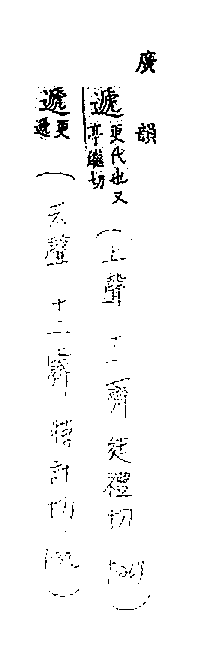 廣韻
遞 更代也又亭繼切(上聲 十一薺 徒禮切
遞 更遞(去聲 十二霽 特計切